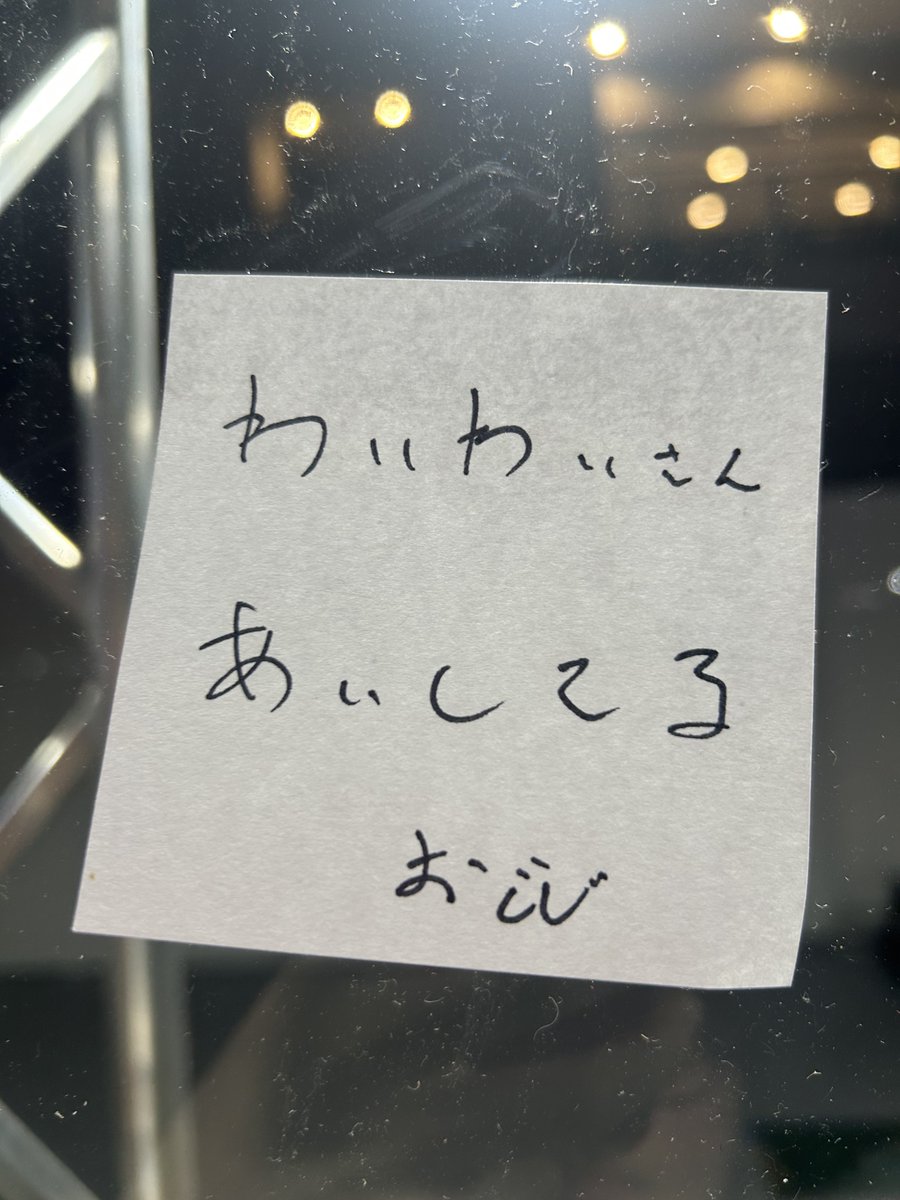 わいわいさん
あいしてる
おごじ